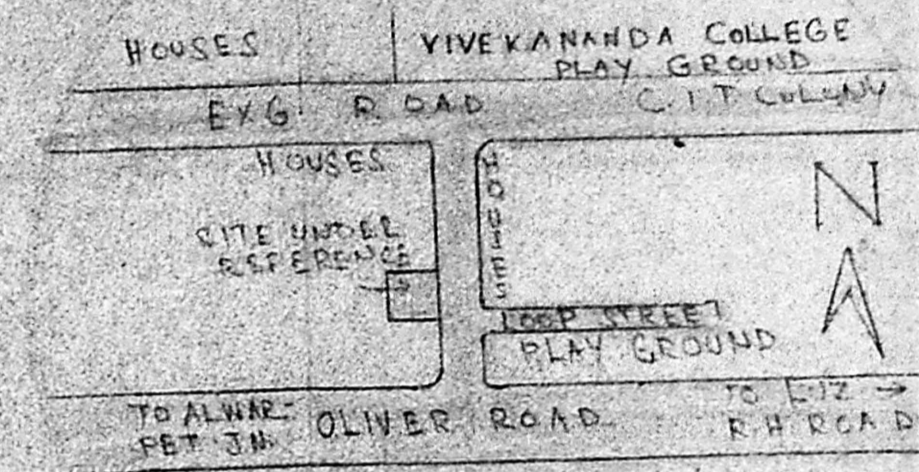 HOUSES
VIVEKANANDA COLLEGE
PLAY GROUND
EXG. ROAD
C.I.T COLONY
HOUSES
HOUSES
SITE UNDER
REFERENCE
N
LOOP STREET
PLAY GROUND
TO ALWAR-
PET JN.
OLIVER ROAD
TO
R H ROAD